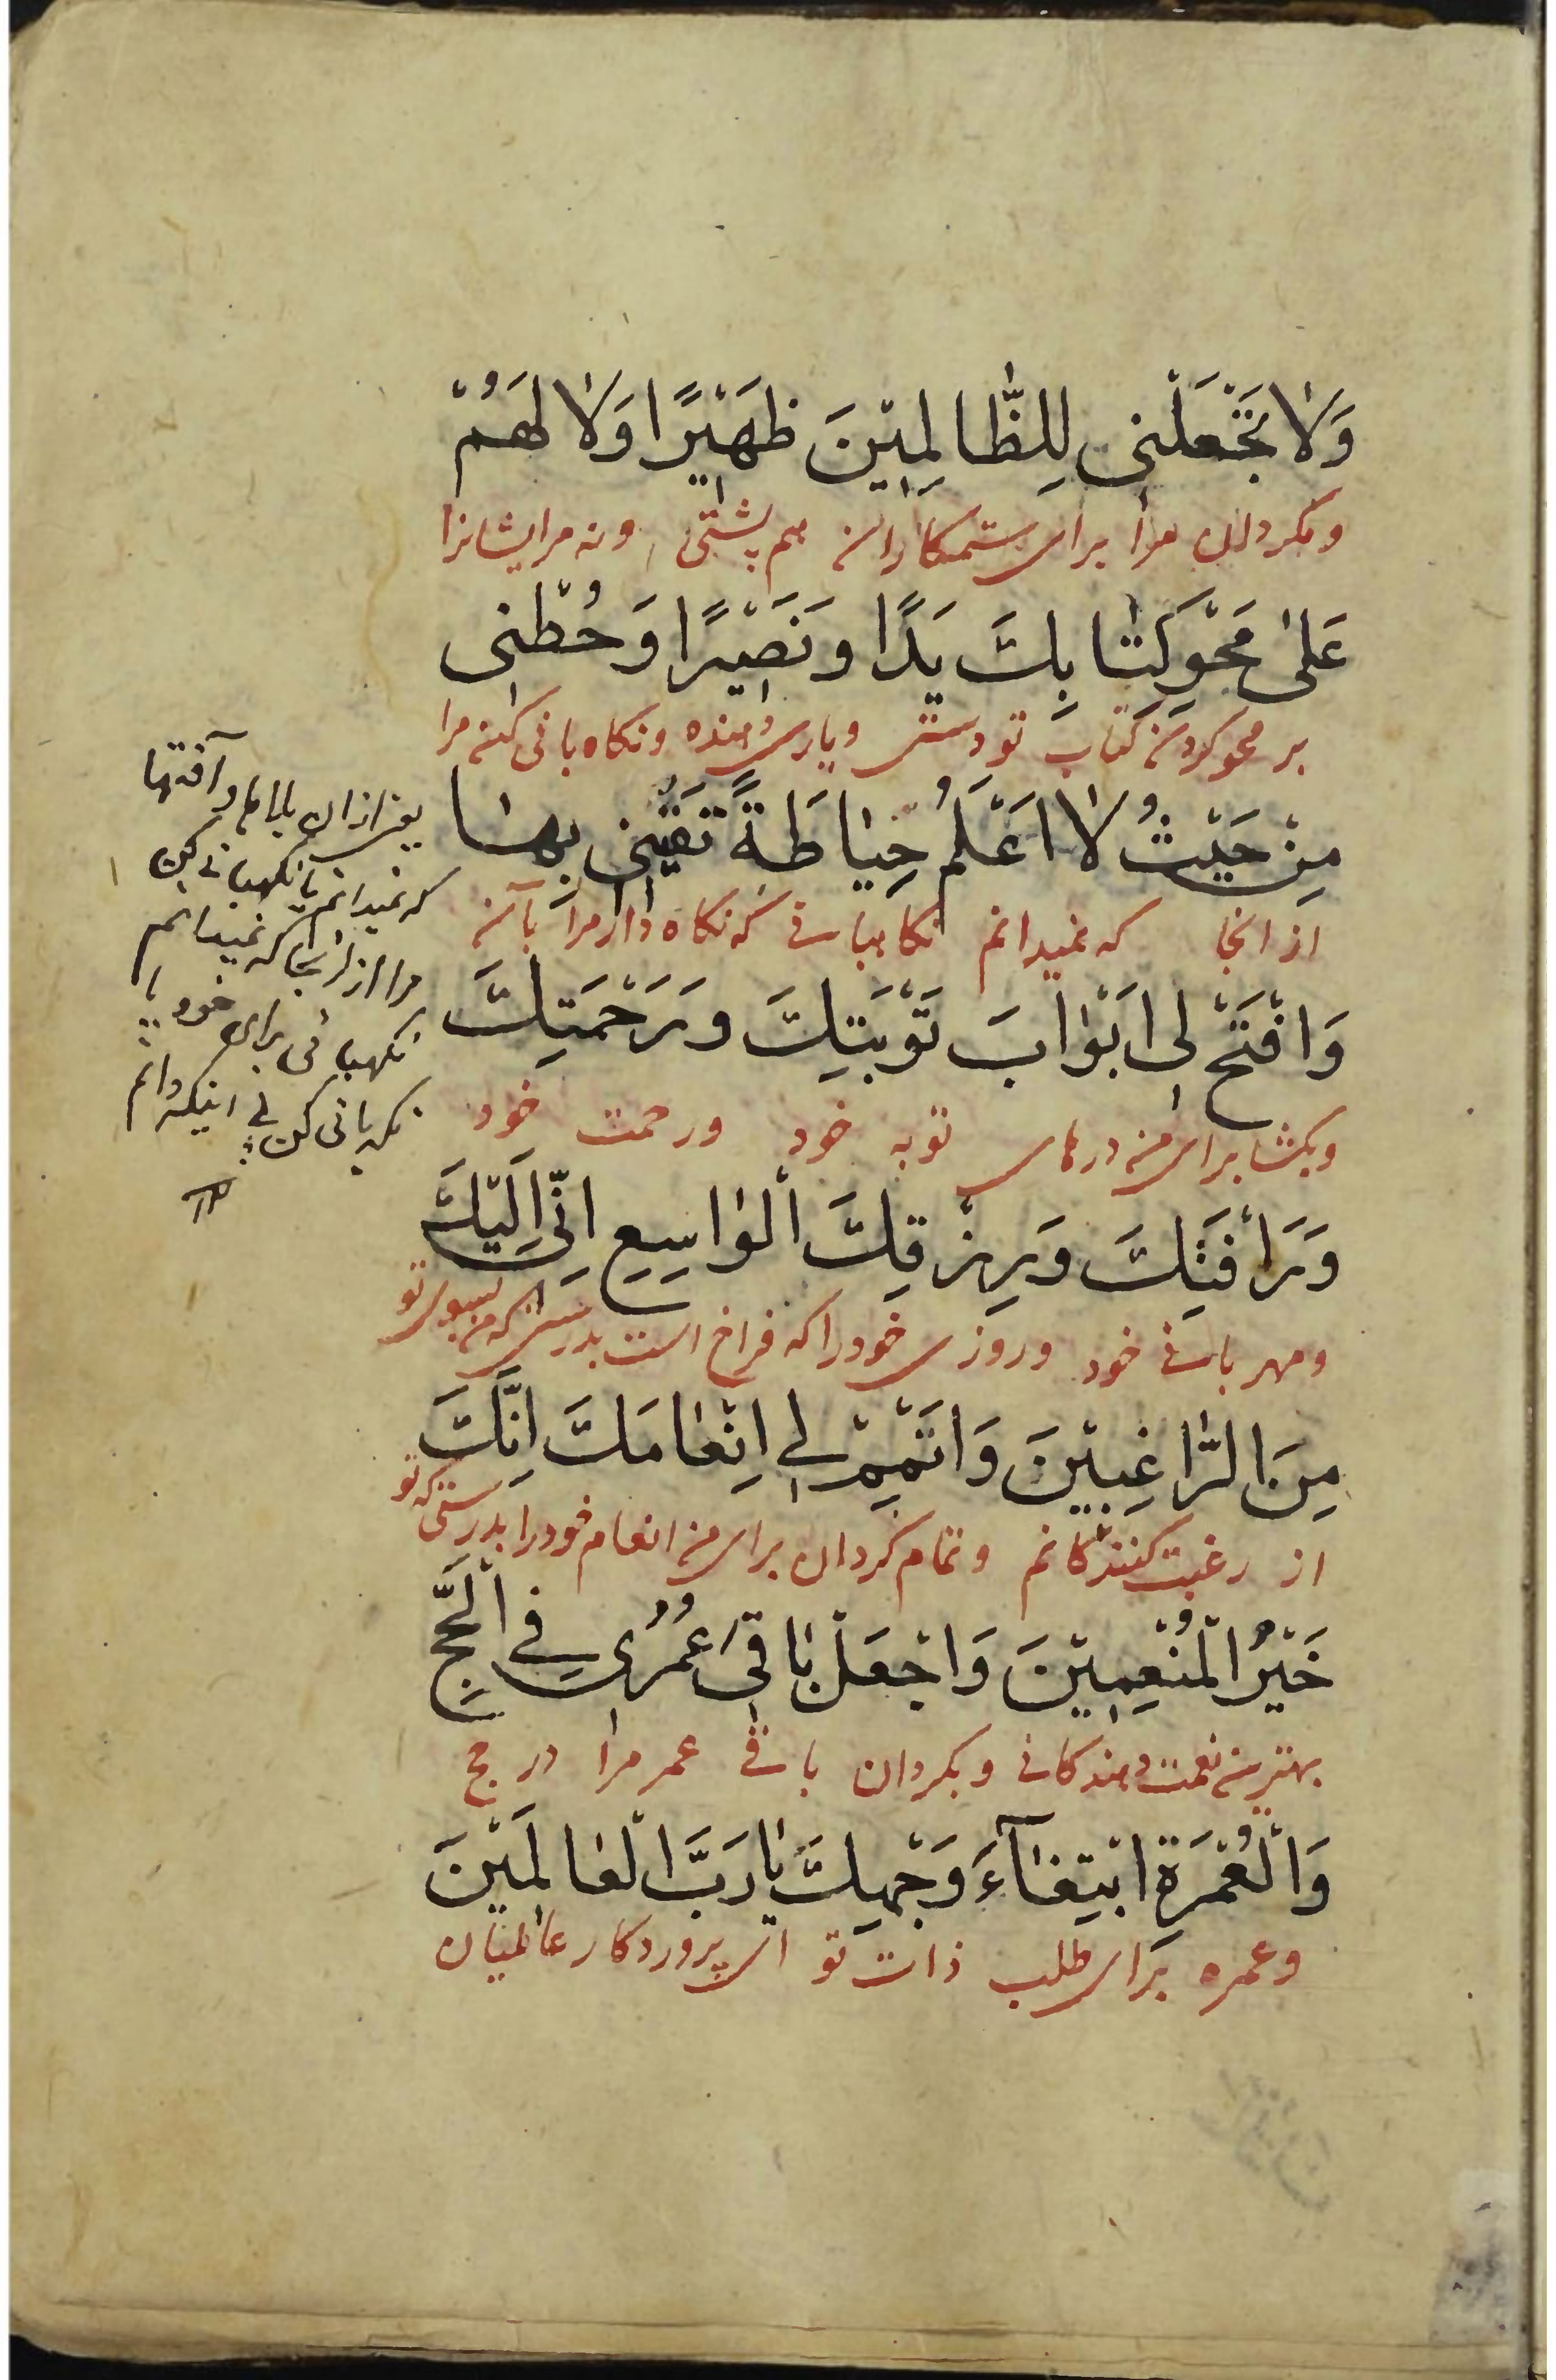 وَلَا تَجْعَلْنِی لِلظَّالِمِیْنَ ظَهِیْرًا وَلَا لَهُمْ
ومکردان مرا برای ستمکاران هم پشتی ونه مرایشانرا
عَلیٰ مَحْوِ کِتَابِكَ یَدًا و نَصِیْرًا وَ حُطْنِی
بر محو کردن کتاب تو دستی ویاری دهنده ونکاه بانی کن مرا
مِنْ حَیْثُ لَا اَعْلَمُ حِیَاطَةً تَقِیْنِی بِهَا
از انجا که نمیدانم نکاهبانی که نکاه دار مرا بآن
وَافْتَحْ لِی اَبْوَابَ تَوْبَتِكَ وَرَحْمَتِكَ
وبکشا برای من درهای توبه خود ورحمت خود
وَرَأْفَتِكَ وَرِزْقِكَ الْوَاسِعِ اِنِّی اِلَیْكَ
ومهربانی خود وروزی خود را که فراخ است بدرستی که من بسوی تو
مِنَ الرَّاغِبِیْنَ وَاَتْمِمْ لِی اِنْعَامَكَ اِنَّكَ
از رغبت کنندکانم وتمام کردان برای من انعام خود را بدرستی که تو
خَیْرُ الْمُنْعِمِیْنَ وَاجْعَلْ بَاقِیَ عُمُرِی فِی الْحَجِّ
بهترین نعمت دهندکانی وبکردان باقی عمر مرا در حج
وَالْعُمْرَةِ ابْتِغَآءَ وَجْهِكَ یَا رَبَّ الْعَالَمِیْنَ
وعمره برای طلب ذات تو ای پروردکار عالمیان
یعنی ازان بلاها وآفتها
که نمیدانم یا نکهبانی کن
مرا از انجا که نمیدانم
نکهبانی برای خود یا
نکهبانی کن بی اینکه دانم